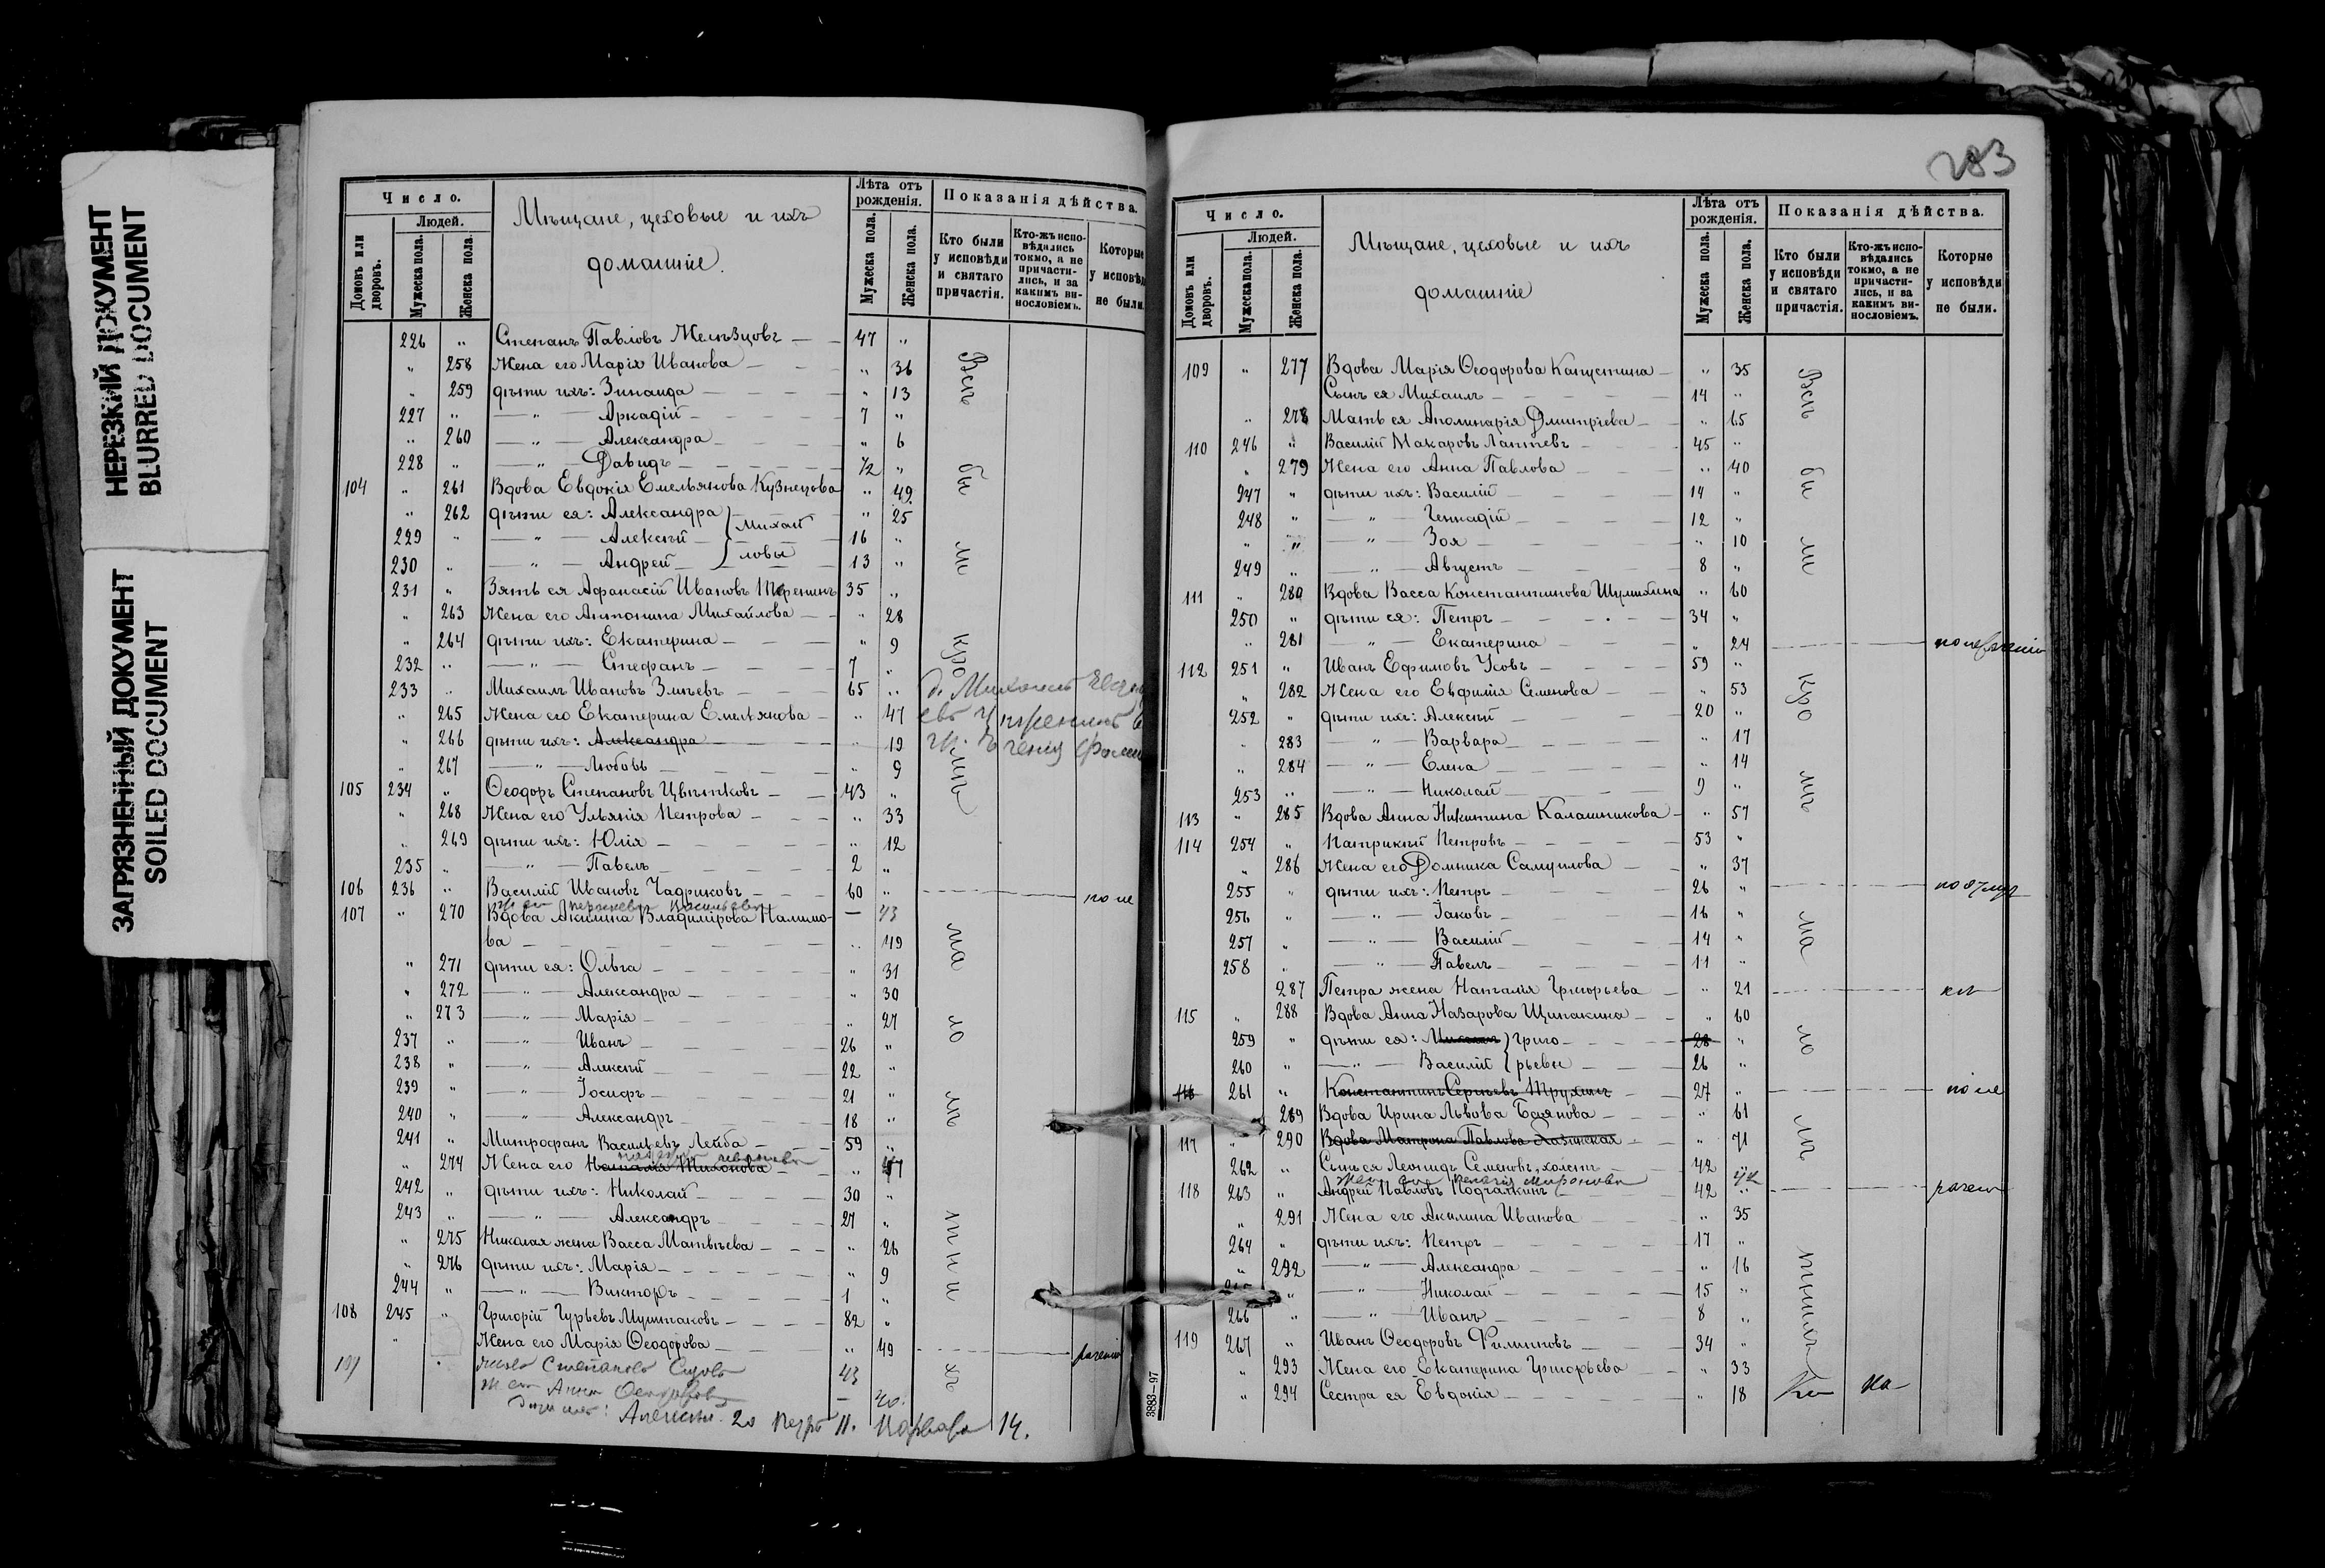 НЕРЕЗКИЙ ДОКУМЕНТ
BLURRED DOCUMENT
ЗАГРЯЗНЕННЫЙ ДОКУМЕНТ
SOILED DOCUMENT
Число.
Людей.
Домовъ или дворовъ.
Мужеска пола.
Женска пола.
Мѣщане, цеховые и ихъ
домашніе.
Лѣта отъ рожденія.
Мужеска пола.
Женска пола.
Показанія дѣйства.
Кто были у исповѣди и святаго причастія.
Кто-жъ исповѣдались токмо, а не причастились, и за какимъ винословіемъ.
Которые у исповѣди не были.
226 " Степанъ Павловъ Желѣзцовъ 47 "
" 258 Жена его Марія Иванова " 36
" 259 дѣти ихъ: Зинаида " 13
227 " " Аркадій 7 "
" 260 " Александра " 6
228 " " Давидъ 1/2 "
104 " 261 Вдова Евдокія Емельянова Кузнецова " 49
" 262 дѣти ея: Александра " 25
229 " " Алексѣй Михай 16 "
230 " " Андрей ловы 13 "
231 " Зять ея Афанасій Ивановъ Теренинъ 35 "
" 263 Жена его Антонина Михайлова " 28
" 264 дѣти ихъ: Екатерина " 9
232 " " Стефанъ 7 "
233 " Михаилъ Ивановъ Змѣевъ 65 "
" 265 Жена его Екатерина Емельянова " 47
" 266 дѣти ихъ: Александра " 19
" 267 " Любовь " 9
105 234 " Ѳеодоръ Степановъ Цвѣтковъ 43 "
" 268 Жена его Ульянія Петрова " 33
" 269 дѣти ихъ: Юлія " 12
235 " " Павелъ 2 "
106 236 " Василій Ивановъ Чадриковъ 60 " по не
107 " 270 Вдова Акилина Владимірова Налимо- 43
ва " 49
" 271 дѣти ея: Ольга " 31
" 272 " Александра " 30
" 273 " Марія " 27
237 " " Иванъ 26 "
238 " " Алексѣй 22 "
239 " " Іосифъ 21 "
240 " " Александръ 18 "
241 " Митрофанъ Васильевъ Лейба 59 "
" 274 Жена его Наталія Тихонова "
242 " дѣти ихъ: Николай 30 "
243 " " Александръ 27 "
" 275 Николая жена Васса Матвѣева " 26
" 276 дѣти ихъ: Марія " 9
244 " " Викторъ 1 "
108 245 " Григорій Гурьевъ Мушнаковъ 82 "
" Жена его Марія Ѳеодорова " 49
43
Алексѣй 20 Петръ 11. Варвара 14.
Всѣ бы ли кро мѣ ма ло лѣтни хъ
283
Число.
Людей.
Домовъ или дворовъ.
Мужеска пола.
Женска пола.
Мѣщане, цеховые и ихъ
домашніе
Лѣта отъ рожденія.
Мужеска пола.
Женска пола.
Показанія дѣйства.
Кто были у исповѣди и святаго причастія.
Кто-жъ исповѣдались токмо, а не причастились, и за какимъ винословіемъ.
Которые у исповѣди не были.
109 " 277 Вдова Марія Ѳеодорова Капустина " 35
Сынъ ея Михаилъ 14 "
" 278 Мать ея Аполинарія Дмитріева " 65
110 246 " Василій Макаровъ Лаптевъ 45 "
" 279 Жена его Анна Павлова " 40
247 " дѣти ихъ: Василій 14 "
248 " " Геннадій 12 "
" " " Зоя " 10
249 " " Августъ 8 "
111 " 280 Вдова Васса Константинова Шулихина " 60
250 " дѣти ея: Петръ 34 "
" 281 " Екатерина " 24
112 251 " Иванъ Ефимовъ Усовъ 59 "
" 282 Жена его Евфимія Семенова " 53
252 " дѣти ихъ: Алексѣй 20 "
" 283 " Варвара " 17
" 284 " Елена " 14
253 " " Николай 9 "
113 " 285 Вдова Анна Никитина Калашникова " 57
114 254 " Патрикій Петровъ 53 "
" 286 Жена его Домника Самуилова " 37
255 " дѣти ихъ: Петръ 26 "
256 " " Іаковъ 16 "
257 " " Василій 14 "
258 " " Павелъ 11 "
287 Петра жена Наталія Григорьева " 21
115 " 288 Вдова Анна Назарова Щипакина " 60
259 " дѣти ея: Михаилъ Григо 28 "
260 " " Василій рьевы 26 "
116 261 " Константинъ Сергѣевъ Трухинъ 27 " по не
289 Вдова Ирина Львова Баянова " 61
117 " 290 Вдова Матрона Павлова " 71
262 " Сынъ ея Леонидъ Семеновъ, холостъ 42 "
118 263 " Андрей Павловъ Подгалкинъ 42 "
" 291 Жена его Акилина Иванова " 35
264 " дѣти ихъ: Петръ 17 "
" 292 " Александра " 16
" " Николай 15 "
266 " " Иванъ 8 "
119 267 " Иванъ Ѳеодоровъ Филиповъ 34 "
" 293 Жена его Екатерина Григорьева " 33
" 294 Сестра ея Евдокія " 18
Всѣ бы ли кро мѣ ма ло лѣтнихъ
3883—97